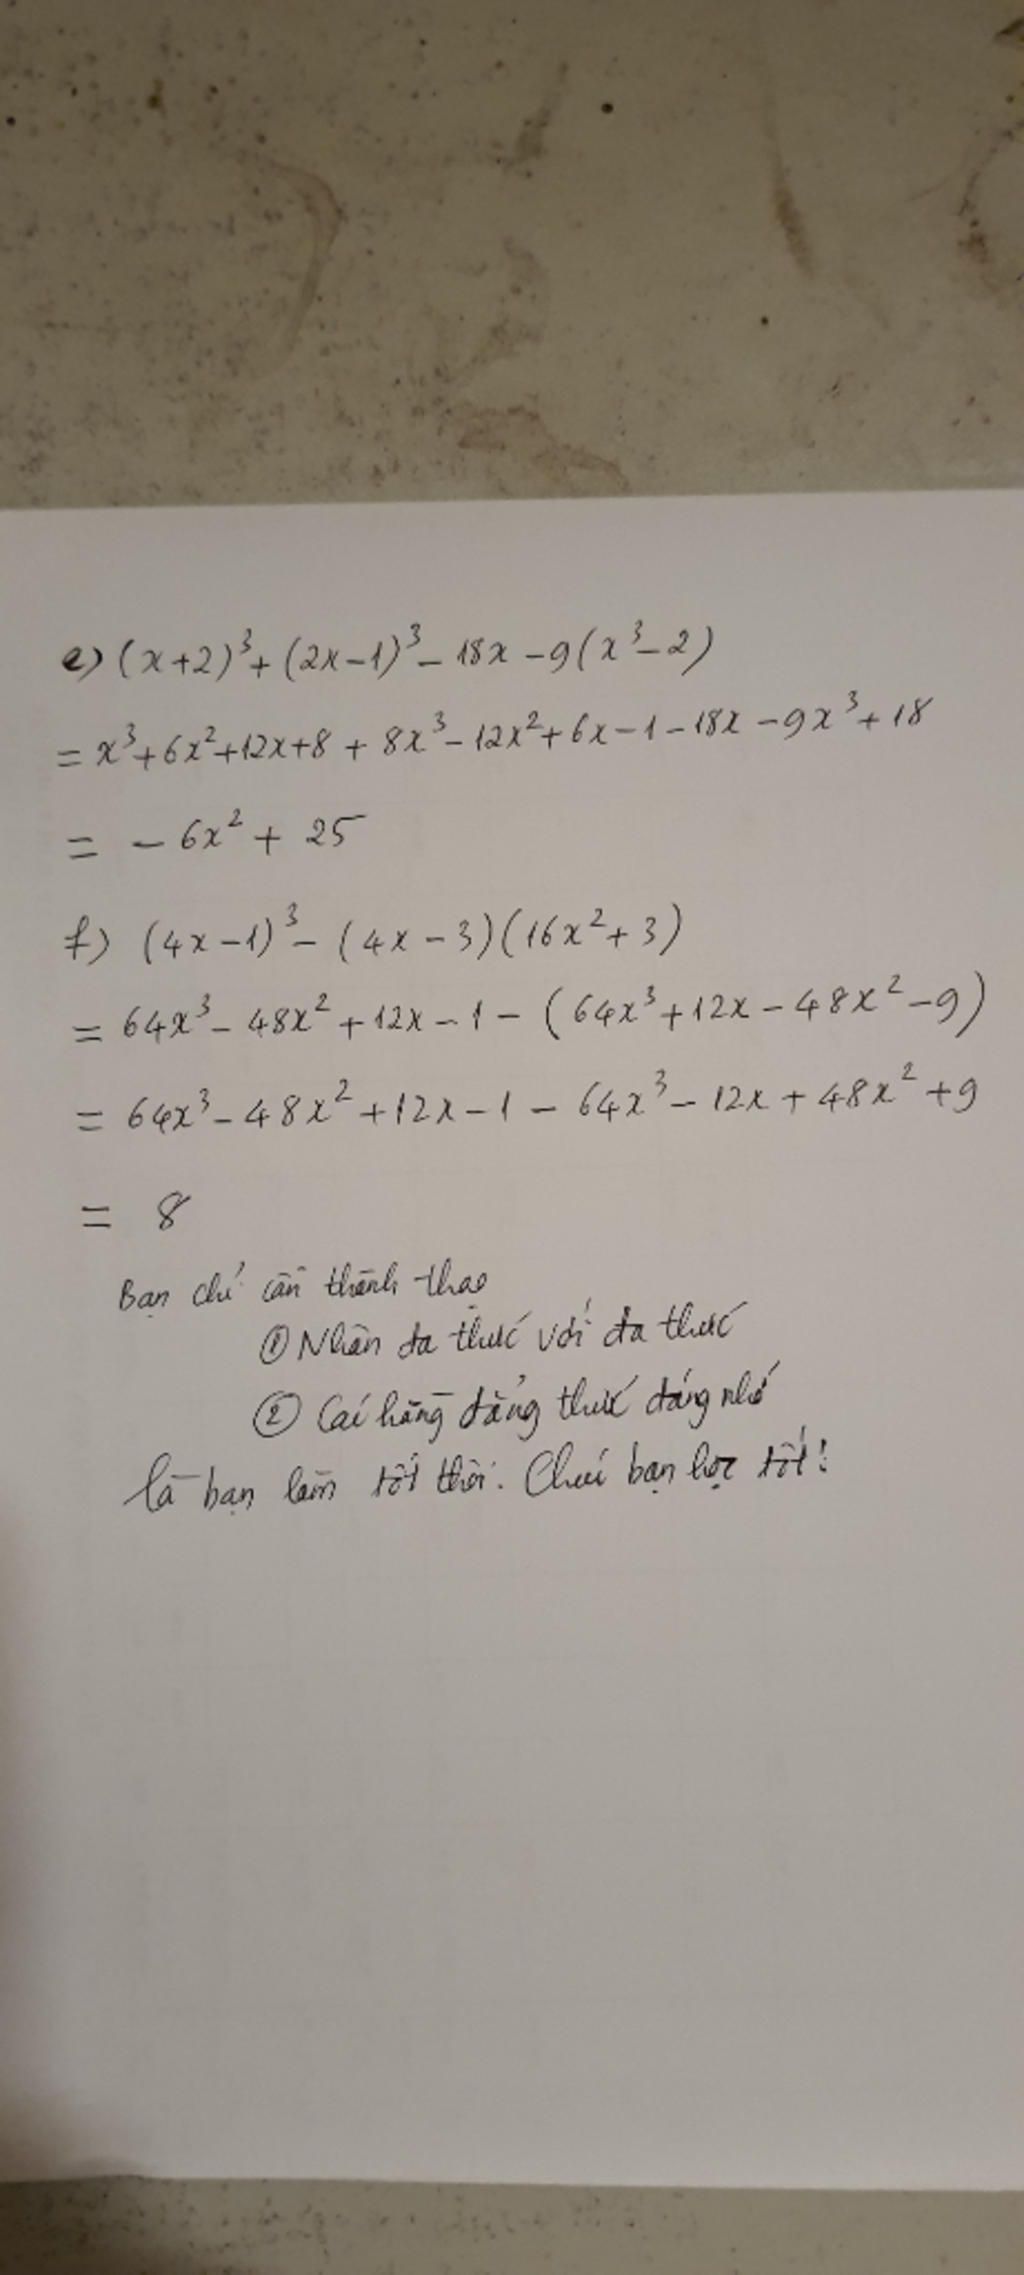 e) (x+2)³+ (2x-1)³- 18x -9(x³-2)
= x³+6x²+12x+8 + 8x³-12x²+6x-1-18x-9x³+18
= - 6x² + 25
f) (4x-1)³- (4x-3)(16x²+3)
= 64x³- 48x² +12x-1 - (64x³+12x-48x²-9)
= 64x³-48x²+12x-1 - 64x³- 12x + 48x² +9
= 8
Bạn chỉ cần thành thạo
① Nhân đa thức với đa thức
② Các hằng đẳng thức đáng nhớ
là bạn làm tốt thôi. Chúc bạn học tốt!